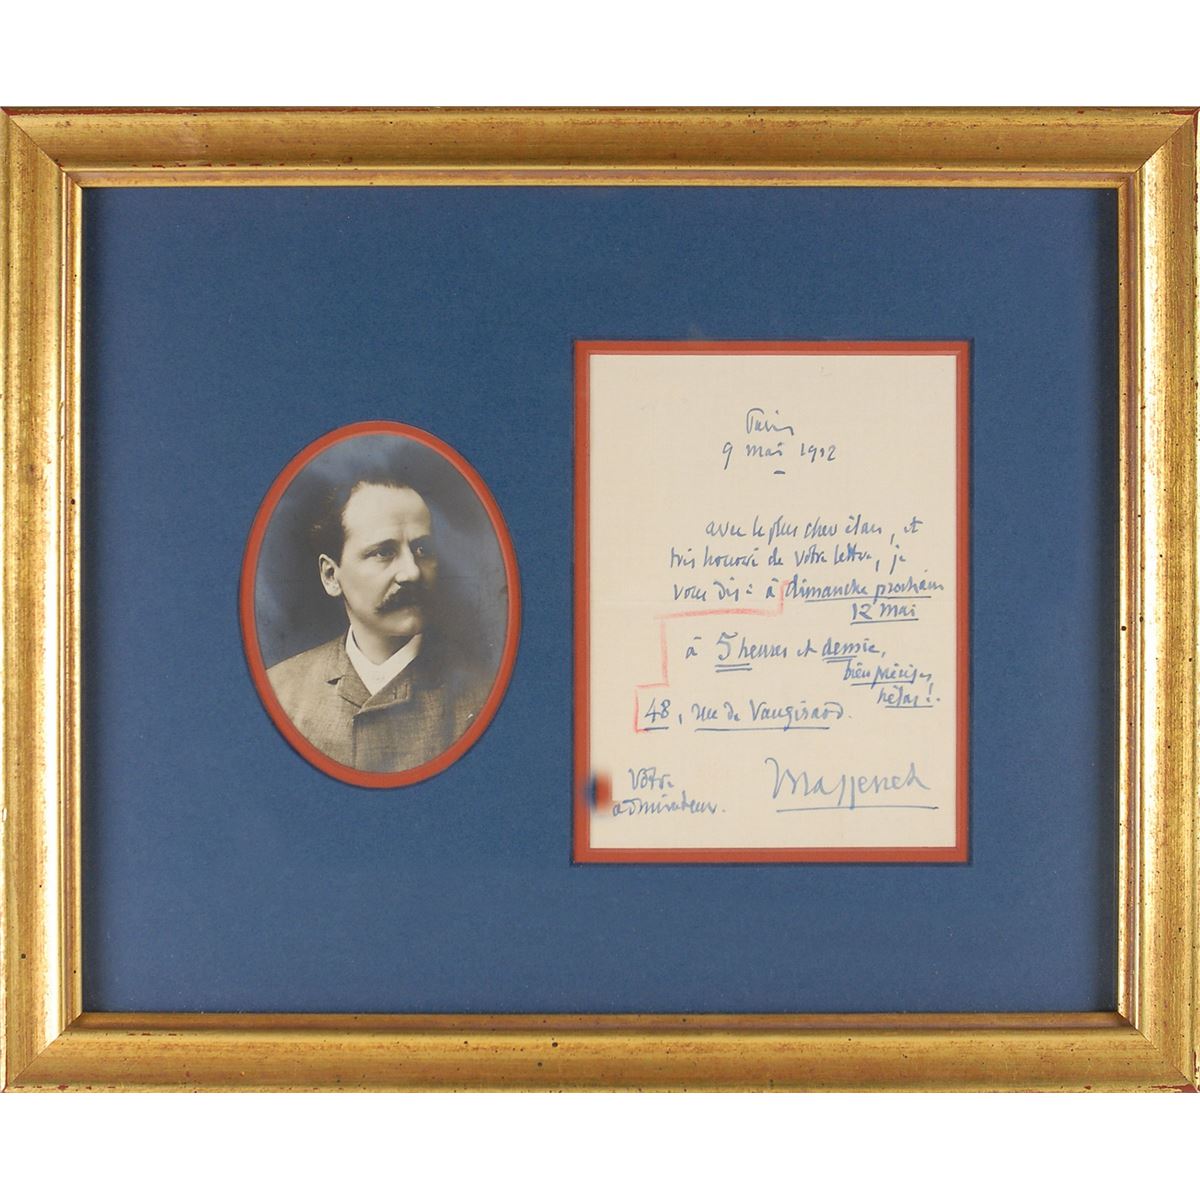 Paris
9 mai 1912
avec le plus cher élan, et
très honoré de votre lettre, je
vous dis : à dimanche prochain
12 mai
à 5 heures et demie,
bien précises,
hélas!.
48, rue de Vaugirard.
Votre
admirateur.
Massenet